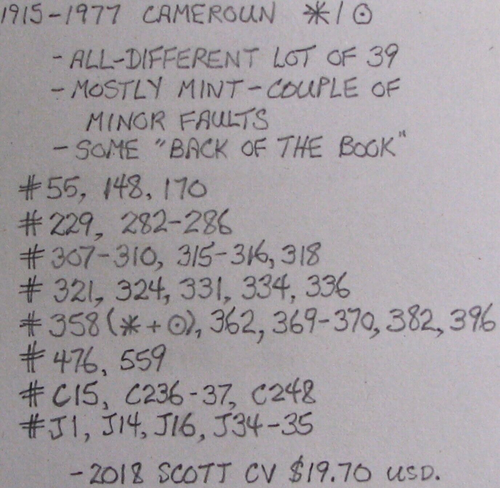 1915-1977 CAMEROUN *|⊙
- ALL-DIFFERENT LOT OF 39
- MOSTLY MINT - COUPLE OF
MINOR FAULTS
- SOME "BACK OF THE BOOK"
#55, 148, 170
#229, 282-286
#307-310, 315-316, 318
#321, 324, 331, 334, 336
#358(*+⊙), 362, 369-370, 382, 396
#476, 559
#C15, C236-37, C248
#J1, J14, J16, J34-35
-2018 SCOTT CV $19.70 USD.